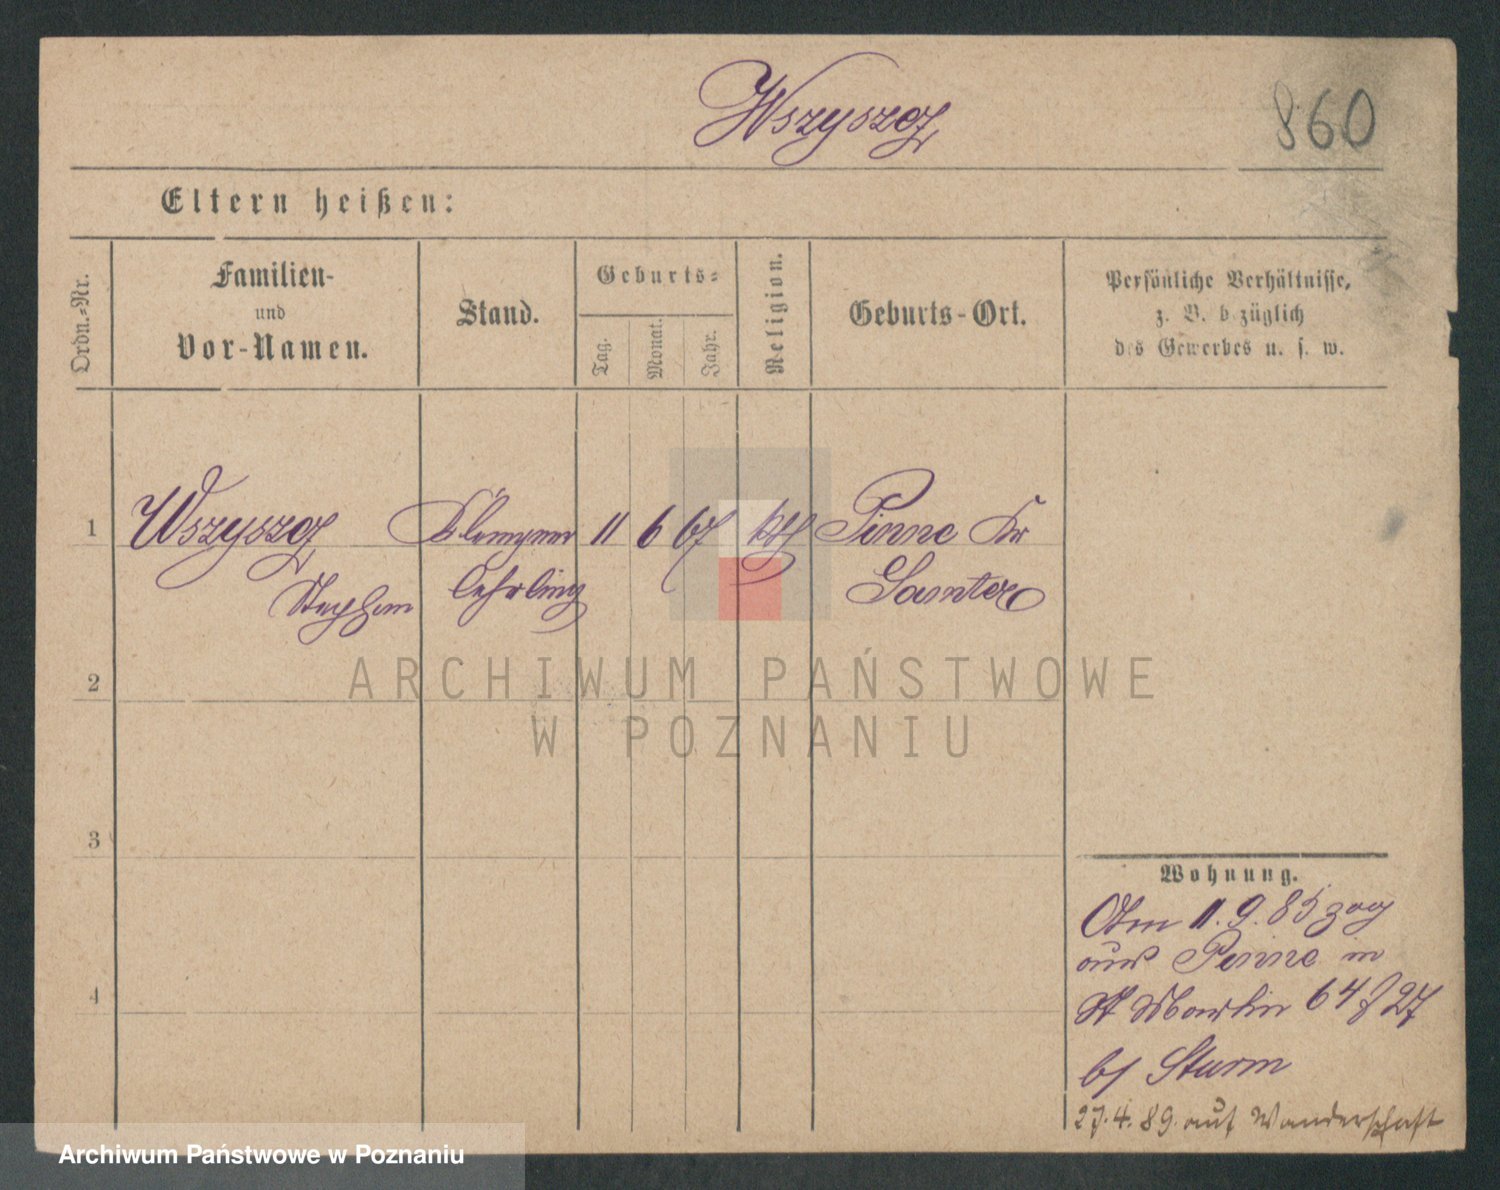 Wszyszcz
860
Eltern heißen:
Ordn.-Nr.
Familien-
und
Vor-Namen.
Stand.
Geburts-
Tag.
Monat.
Jahr.
Religion.
Geburts-Ort.
Persönliche Verhältnisse,
z. B. bezüglich
des Gewerbes u. s. w.
1 Klempner 11 6 67 kth Pinne Kr
Stephan lehrling Samter
2
ARCHIWUM PAŃSTWOWE
W POZNANIU
3
Wohnung.
Am 11.9.85 zog
aus Pinne in
4
St Martin 64 27
bj Sturm
27.4.89. auf Wanderschaft
Archiwum Państwowe w Poznaniu